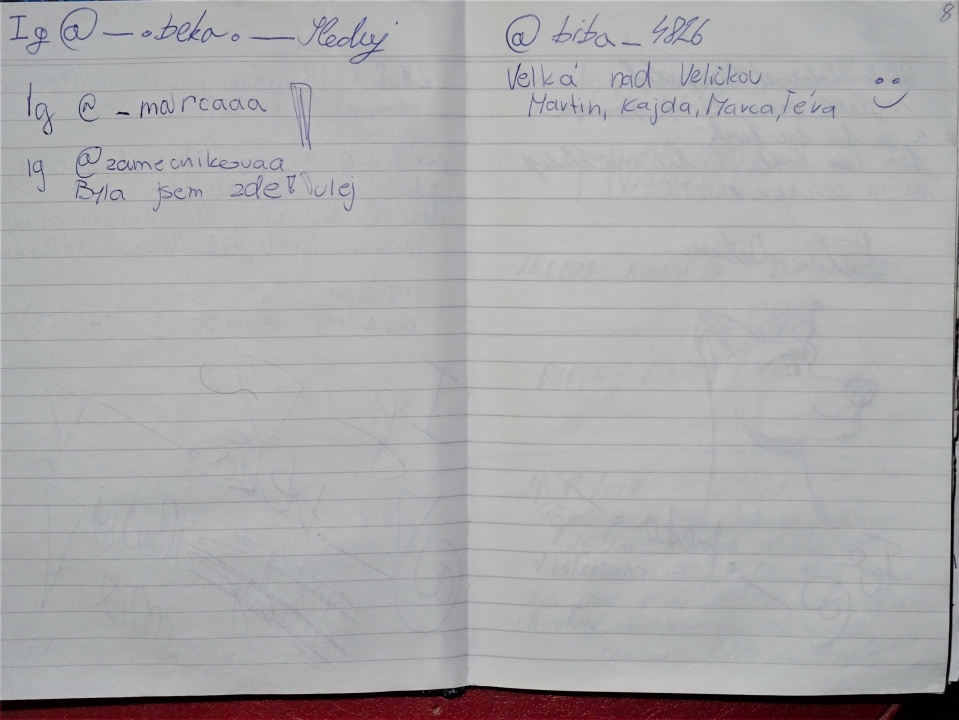 Ig @—.beka.— Sleduj
Ig @-marcaaa
Ig @zamecnikovaa
Byla jsem zde! ulej
8
@biba_4826
Velká nad Veličkou
Martin, Kajda, Marca, Téra